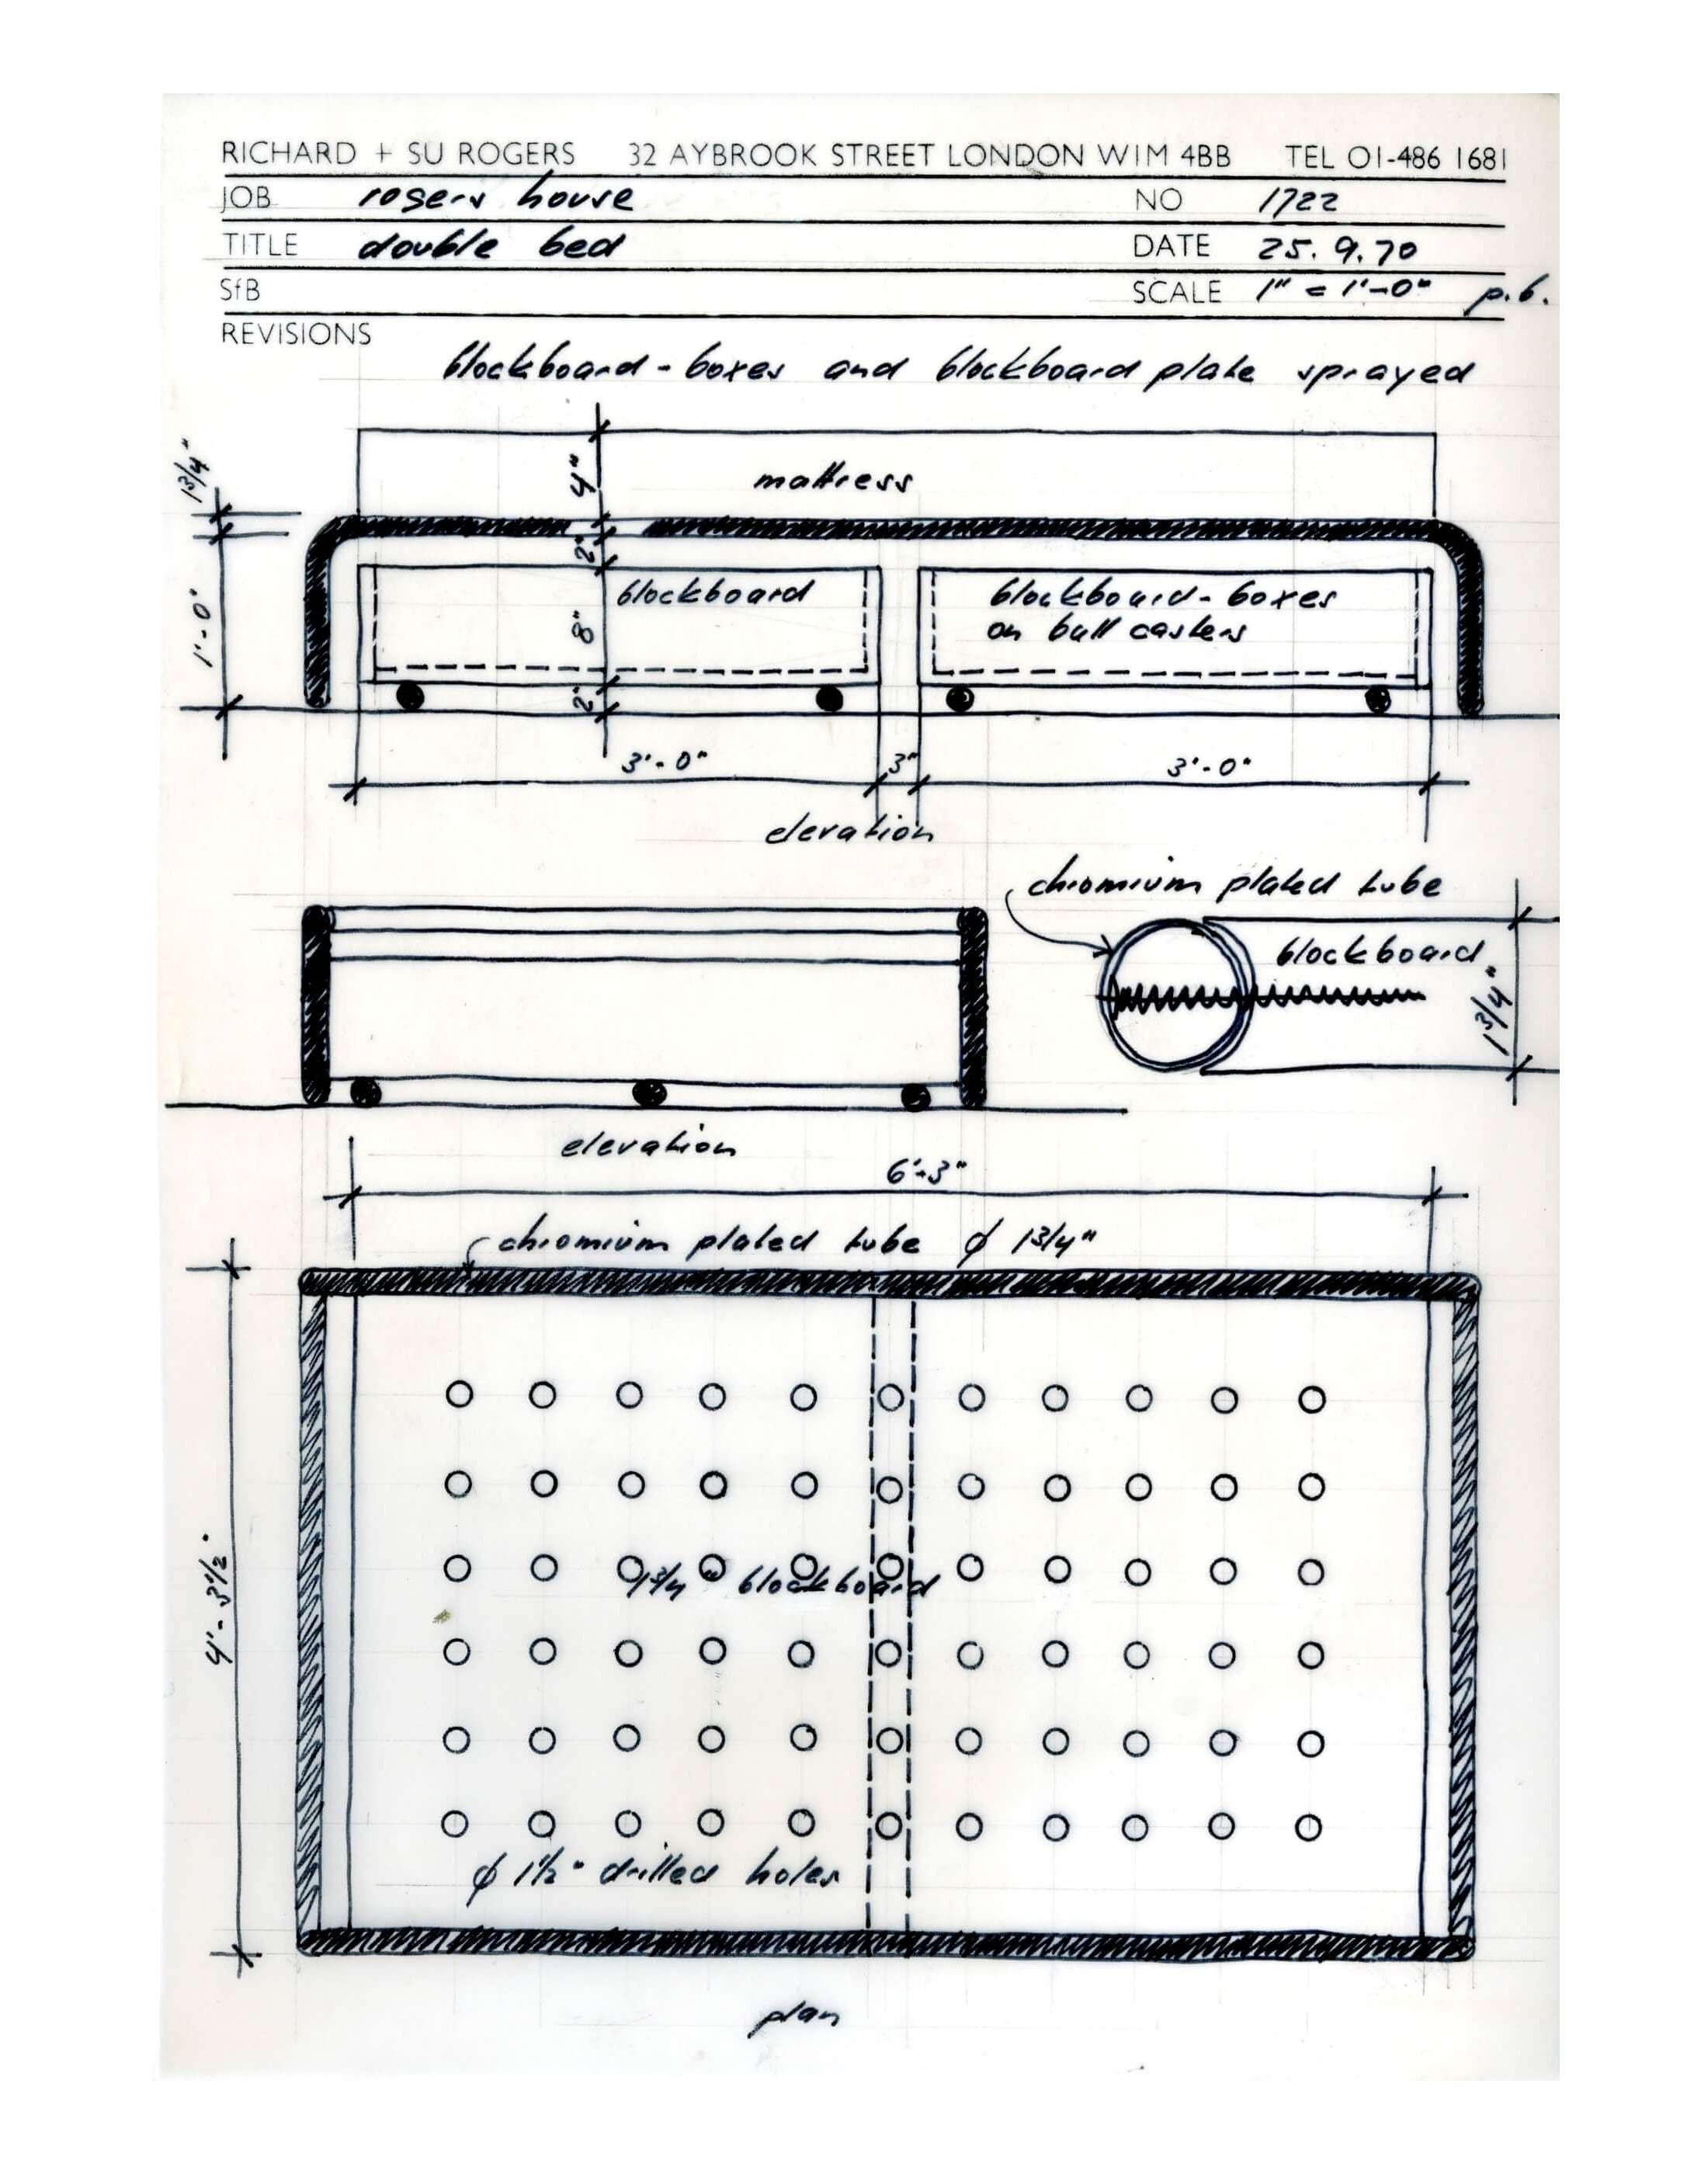 RICHARD + SU ROGERS 32 AYBROOK STREET LONDON W1M 4BB TEL 01-486 1681
JOB rogers house NO 1722
TITLE double bed DATE 25. 9. 70
SfB SCALE 1" = 1'-0" p.6.
REVISIONS
blockboard - boxes and blockboard plate sprayed
1 3/4"
4"
mattress
2"
1'-0"
blockboard
8"
blockboard - boxes
on ball casters
2"
3'-0" 3" 3'-0"
elevation
chromium plated tube
blockboard
1 3/4"
elevation
6'-3"
chromium plated tube ϕ 1 3/4"
4'-3 1/2"
1 3/4" blockboard
ϕ 1 1/2" drilled holes
plan